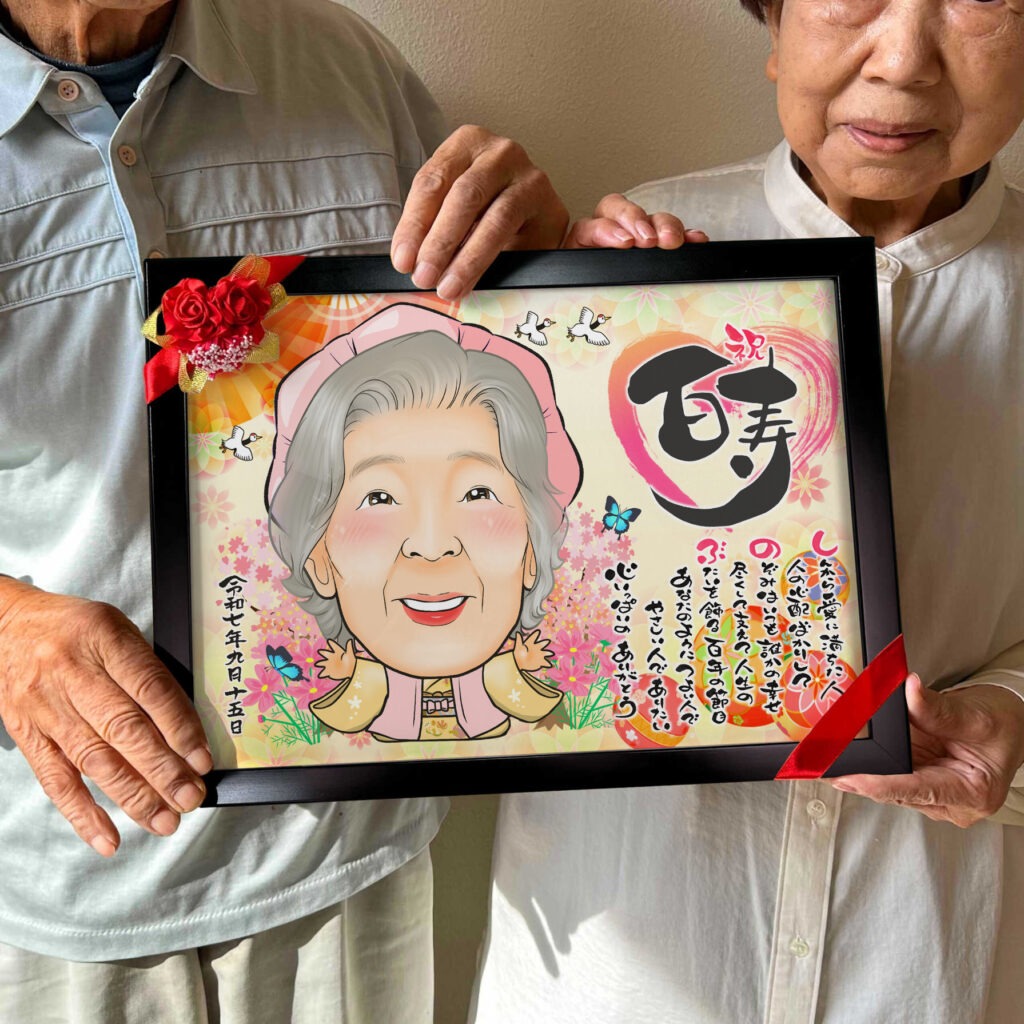 祝
百寿
しわすら愛に満ちた人
人の心配ばかりして
のぞみはいつも誰かの幸せ
尽くして支えて人生の
ぶたいを飾る百年の節目
あなたのようにつよい人で
やさしい人でありたい
心いっぱいのありがとう
令和七年九月十五日